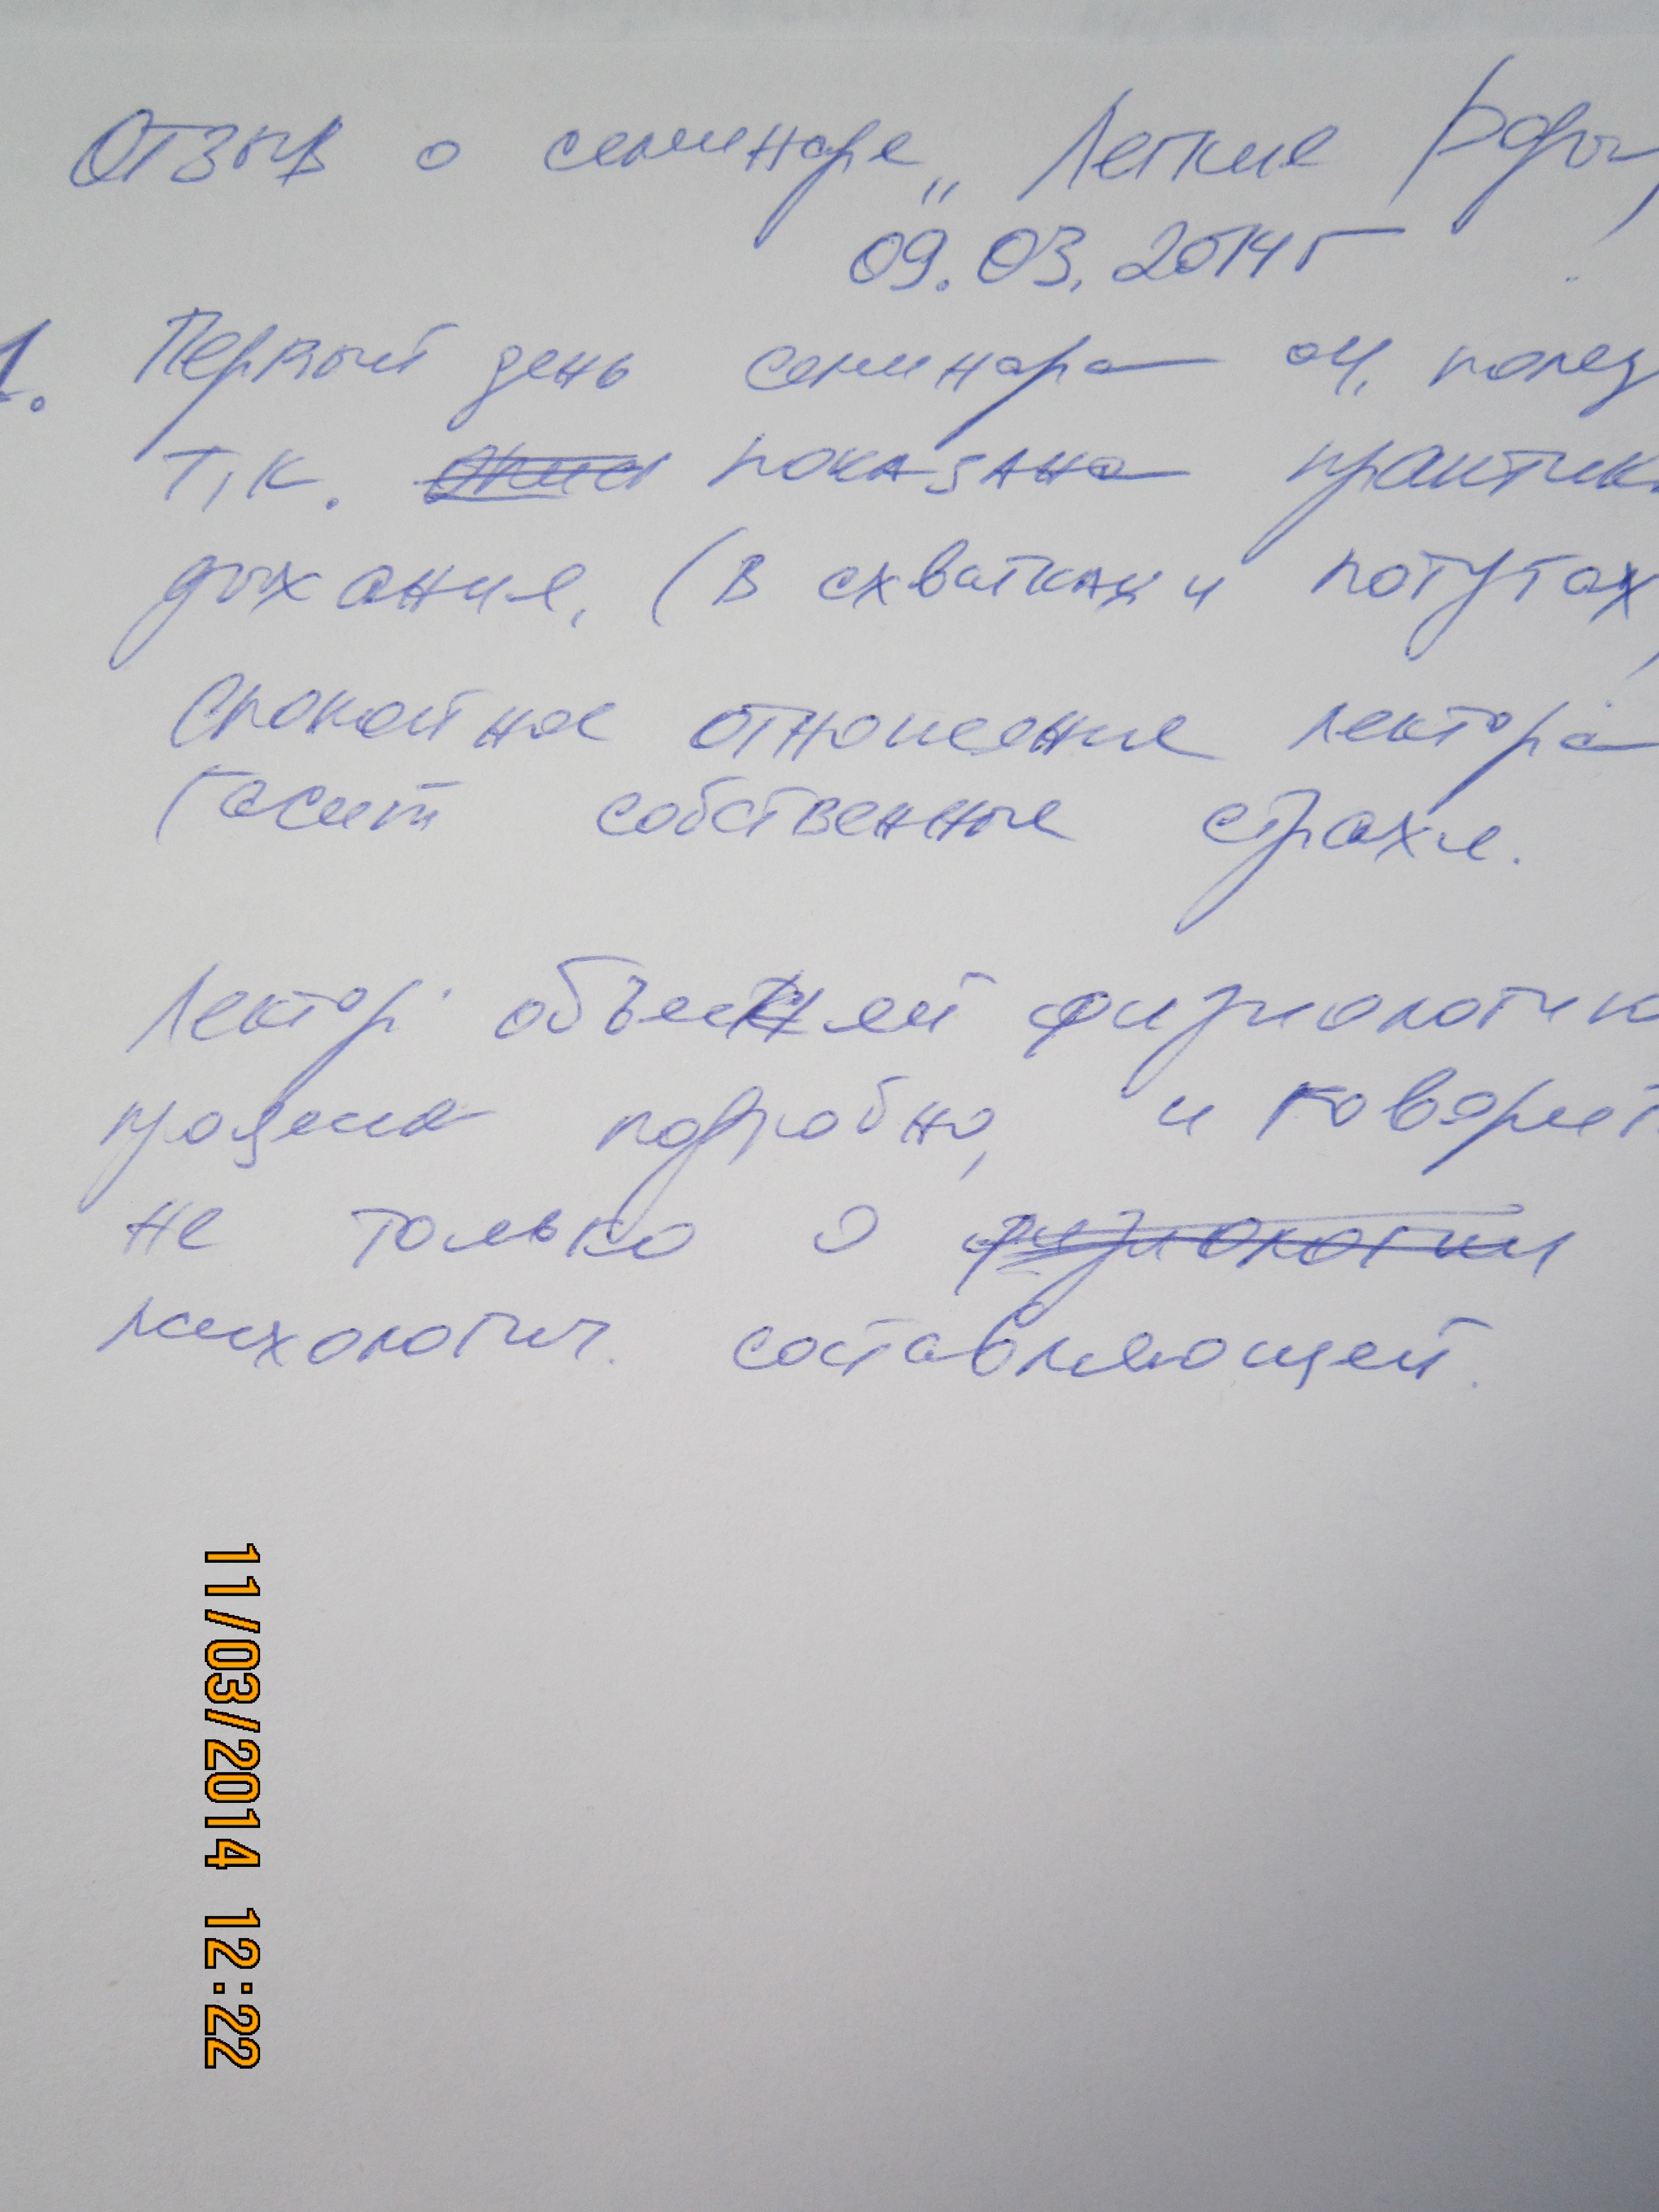 Отзыв о семинаре „Легкие роды
09.03.2014г
1. Первый день семинара оч. полез
т.к. показана практик
дыхание, (в схватках и потугах
Спокойное отношение лектора
гасит собственные страхи.
Лектор физиологию
подробно, и говорит
не только о физиологии
психологич. составляющей.
11/03/2014 12:22